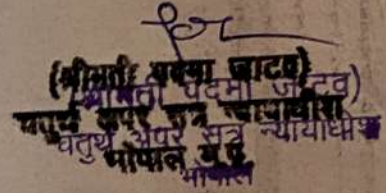 (श्रीमती पदमा जाटव)
(श्रीमती पदमा जाटव)
चतुर्थ अपर सत्र न्यायाधीश
चतुर्थ अपर सत्र न्यायाधीश
भोपाल
भोपाल